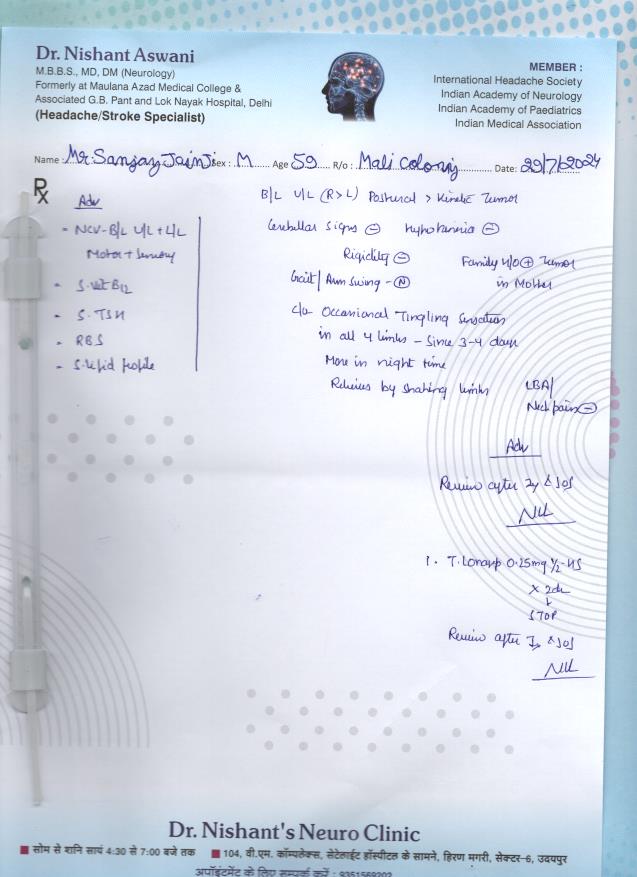 Dr. Nishant Aswani
M.B.B.S., MD, DM (Neurology)
Formerly at Maulana Azad Medical College &
Associated G.B. Pant and Lok Nayak Hospital, Delhi
(Headache/Stroke Specialist)
MEMBER :
International Headache Society
Indian Academy of Neurology
Indian Academy of Paediatrics
Indian Medical Association
Name : Mr. Sanjay Jain Ji Sex : M Age 59 R/o : Mali Colony Date: 29/7/2024
Rx
Adv
- NCV - B/L U/L + L/L
Motor + Sensory
- S. Vit B12
- S. TSH
- RBS
- S. Lipid Profile
B/L U/L (R>L) Postural > Kinetic Tumor
Cerebellar Signs (-) Hypokinesia (-)
Rigidity (-) Family H/O (+) Tumor
Gait / Arm Swing - (N) in Mother
c/o Occasional Tingling Sensation
in all 4 limbs - Since 3-4 days
More in night time
Relieves by shaking limbs LBA/
Neck pain (-)
Adv
Review after & SOS
1. T. 0.25mg 1/2 - HS
X
↓
STOP
Review after & SOS
Dr. Nishant's Neuro Clinic
■ सोम से शनि सायं 4:30 से 7:00 बजे तक ■ 104, वी.एम. कॉम्पलेक्स, सेटेलाईट हॉस्पीटल के सामने, हिरण मगरी, सेक्टर-6, उदयपुर
अपॉइंटमेंट के लिए सम्पर्क करें : 9351569202